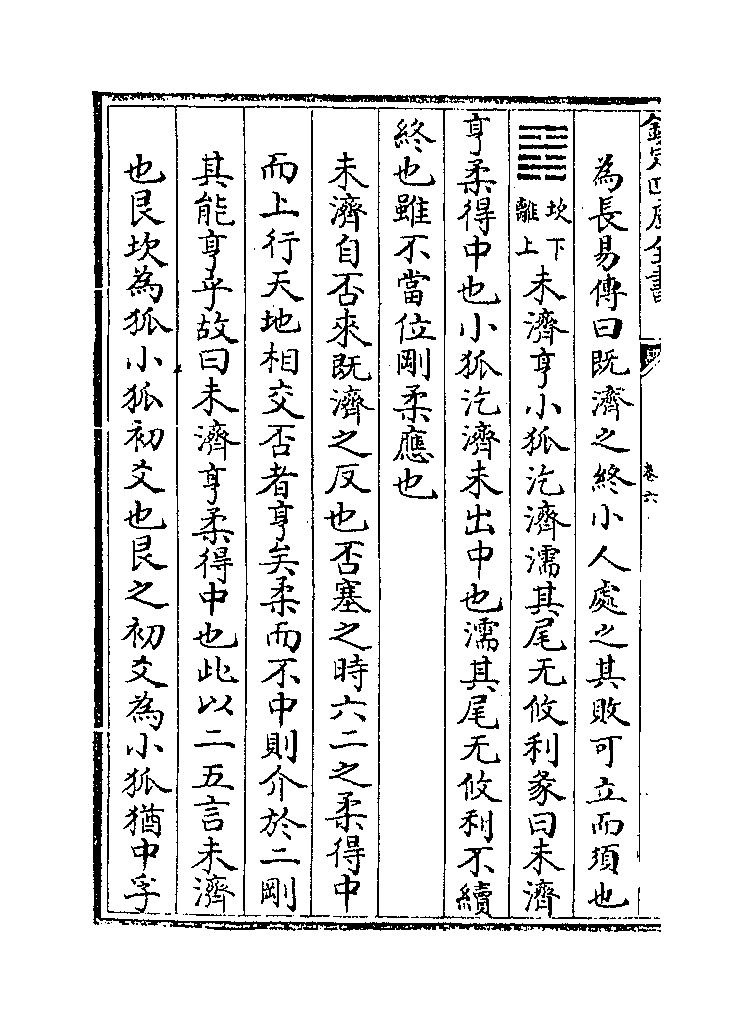 欽定四庫全書
卷六
為長易傳曰既濟之終小人處之其敗可立而須也
䷿坎下離上未濟亨小狐汔濟濡其尾无攸利彖曰未濟
亨柔得中也小狐汔濟未出中也濡其尾无攸利不續
終也雖不當位剛柔應也
未濟自否來既濟之反也否塞之時六二之柔得中
而上行天地相交否者亨矣柔而不中則介於二剛
其能亨乎故曰未濟亨柔得中也此以二五言未濟
也艮坎為狐小狐初爻也艮之初爻為小狐猶中孚